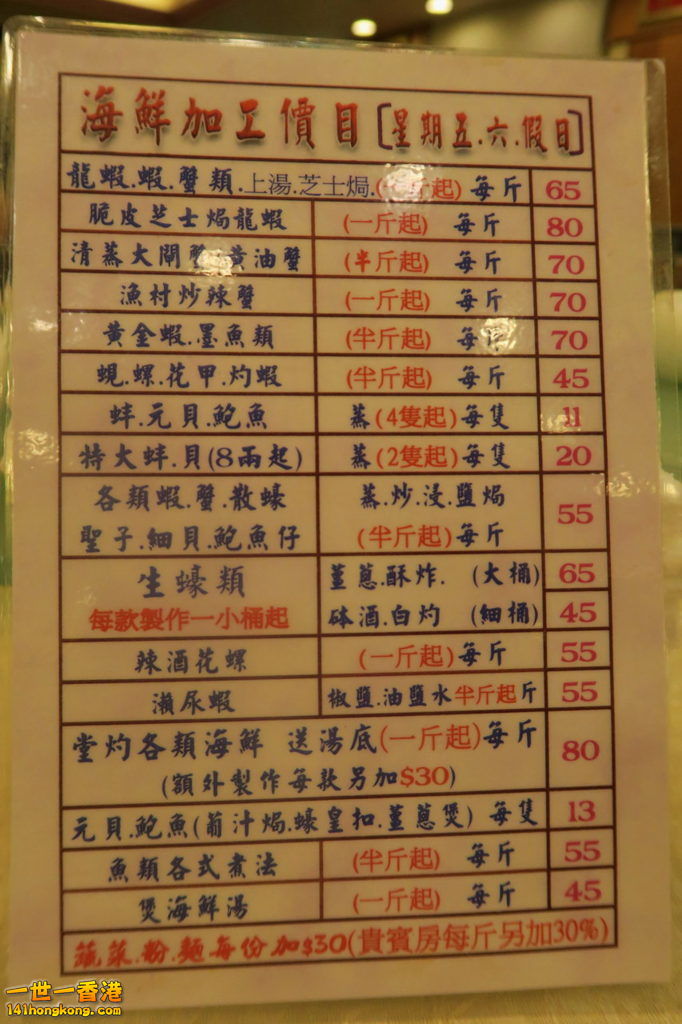 海鮮加工價目〔星期五.六.假日〕
龍蝦.蝦.蟹類.上湯.芝士焗.(斤起) 每斤 65
脆皮芝士焗龍蝦 (一斤起) 每斤 80
清蒸大閘蟹 黃油蟹 (半斤起) 每斤 70
漁村炒辣蟹 (一斤起) 每斤 70
黃金蝦.墨魚類 (半斤起) 每斤 70
蜆.螺.花甲.灼蝦 (半斤起) 每斤 45
蚌.元貝.鮑魚 蒸(4隻起)每隻 11
特大蚌.貝(8兩起) 蒸(2隻起)每隻 20
各類蝦.蟹.散蠔 蒸.炒.浸.鹽焗
聖子.細貝.鮑魚仔 (半斤起)每斤 55
生蠔類 薑蔥.酥炸. (大桶) 65
每款製作一小桶起 砵酒.白灼 (細桶) 45
辣酒花螺 (一斤起)每斤 55
瀨尿蝦 椒鹽.油鹽水半斤起斤 55
堂灼各類海鮮 送湯底(一斤起)每斤 80
(額外製作每款另加$30)
元貝.鮑魚(萄汁焗.蠔皇扣.薑蔥煲) 每隻 13
魚類各式煮法 (半斤起) 每斤 55
煲海鮮湯 (一斤起) 每斤 45
蔬菜.粉.麵每份加$30(貴賓房每斤另加30%)
一世一香港
141hongkong.com